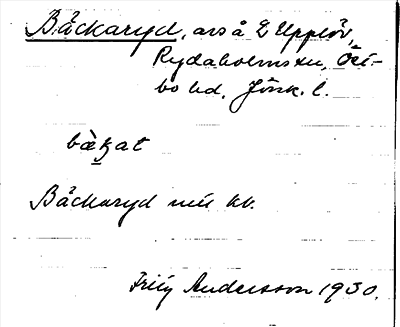 Bäckaryd, avs å 2 Upplöv,
Rydaholms sn, Öst-
bo hd, Jönk. l.
bæ̀kat
Bäckaryd mis kb.
Andersson 1930.